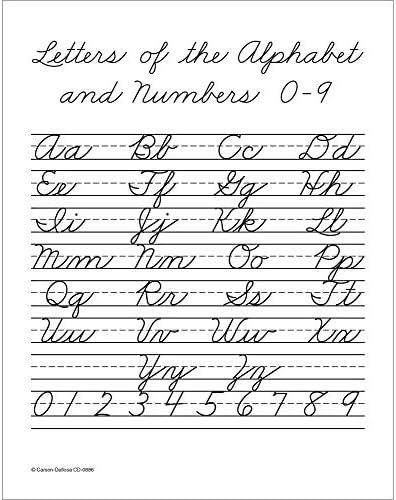 Letters of the Alphabet
and Numbers 0-9
Aa Bb Cc Dd
Ee Ff Gg Hh
Ii Jj Kk Ll
Mm Nn Oo Pp
Qq Rr Ss Tt
Uu Vv Ww Xx
Yy Zz
0 1 2 3 4 5 6 7 8 9
© Carson-Dellosa CD-0886